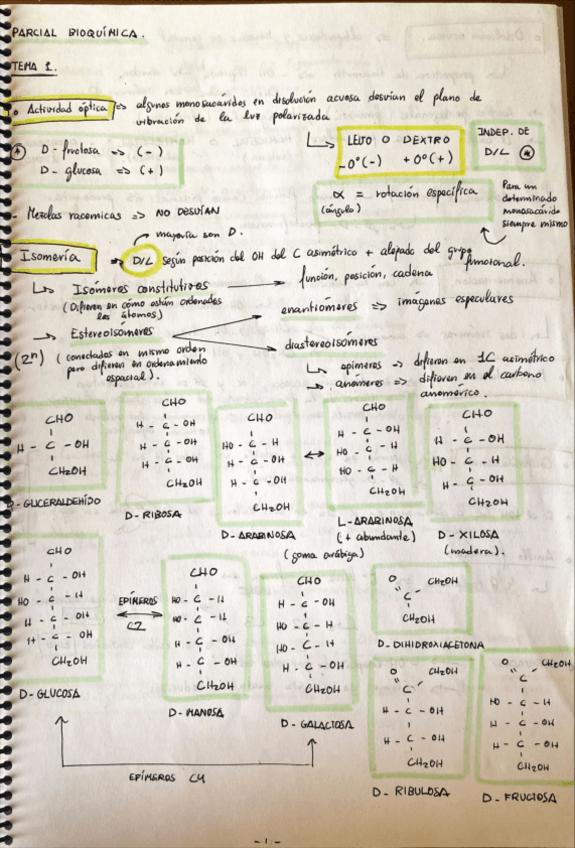 PARCIAL BIOQUÍMICA.
TEMA 1.
• Actividad óptica => algunos monosacáridos en disolución acuosa desvían el plano de
vibración de la luz polarizada
* D - fructosa => (-)
D - glucosa => (+)
LEVO O DEXTRO
-0º(-) +0º(+)
INDEP. DE
D/L *
α = rotación específica
(ángulo)
Para un
determinado
monosacárido
siempre mismo
- Mezclas racemicas => NO DESVÍAN
mayoría son D.
Isomería => D/L según posición del OH del C asimétrico + alejado del grupo funcional.
Isómeros constitutivos → función, posición, cadena
(Difieren en cómo están ordenados
los átomos)
→ Estereoisómeros
enantiómeros => imagenes especulares
diastereoisómeros
(2ⁿ) (conectados en mismo orden
pero difieren en ordenamiento
espacial).
epímeros => difieren en 1C asimétrico
anómeros => difieren en el carbono
anomérico.
CHO
H - C - OH
CH2OH
D-GLICERALDEHÍDO
CHO
H - C - OH
H - C - OH
H - C - OH
CH2OH
D-RIBOSA
CHO
HO - C - H
H - C - OH
H - C - OH
CH2OH
D-ARABINOSA
↔
CHO
H - C - OH
HO - C - H
HO - C - H
CH2OH
L-ARABINOSA
(+ abundante)
(goma arábiga)
CHO
H - C - OH
HO - C - H
H - C - OH
CH2OH
D-XILOSA
(madera).
CHO
H - C - OH
HO - C - H
H - C - OH
H - C - OH
CH2OH
D-GLUCOSA
EPÍMEROS
C2
CHO
HO - C - H
HO - C - H
H - C - OH
H - C - OH
CH2OH
D-MANOSA
CHO
H - C - OH
HO - C - H
HO - C - H
H - C - OH
CH2OH
D-GALACTOSA
EPÍMEROS C4
O CH2OH
C
CH2OH
D-DIHIDROXIACETONA
O CH2OH
C
H - C - OH
H - C - OH
CH2OH
D-RIBULOSA
O CH2OH
C
HO - C - H
H - C - OH
H - C - OH
CH2OH
D-FRUCTOSA
-1-